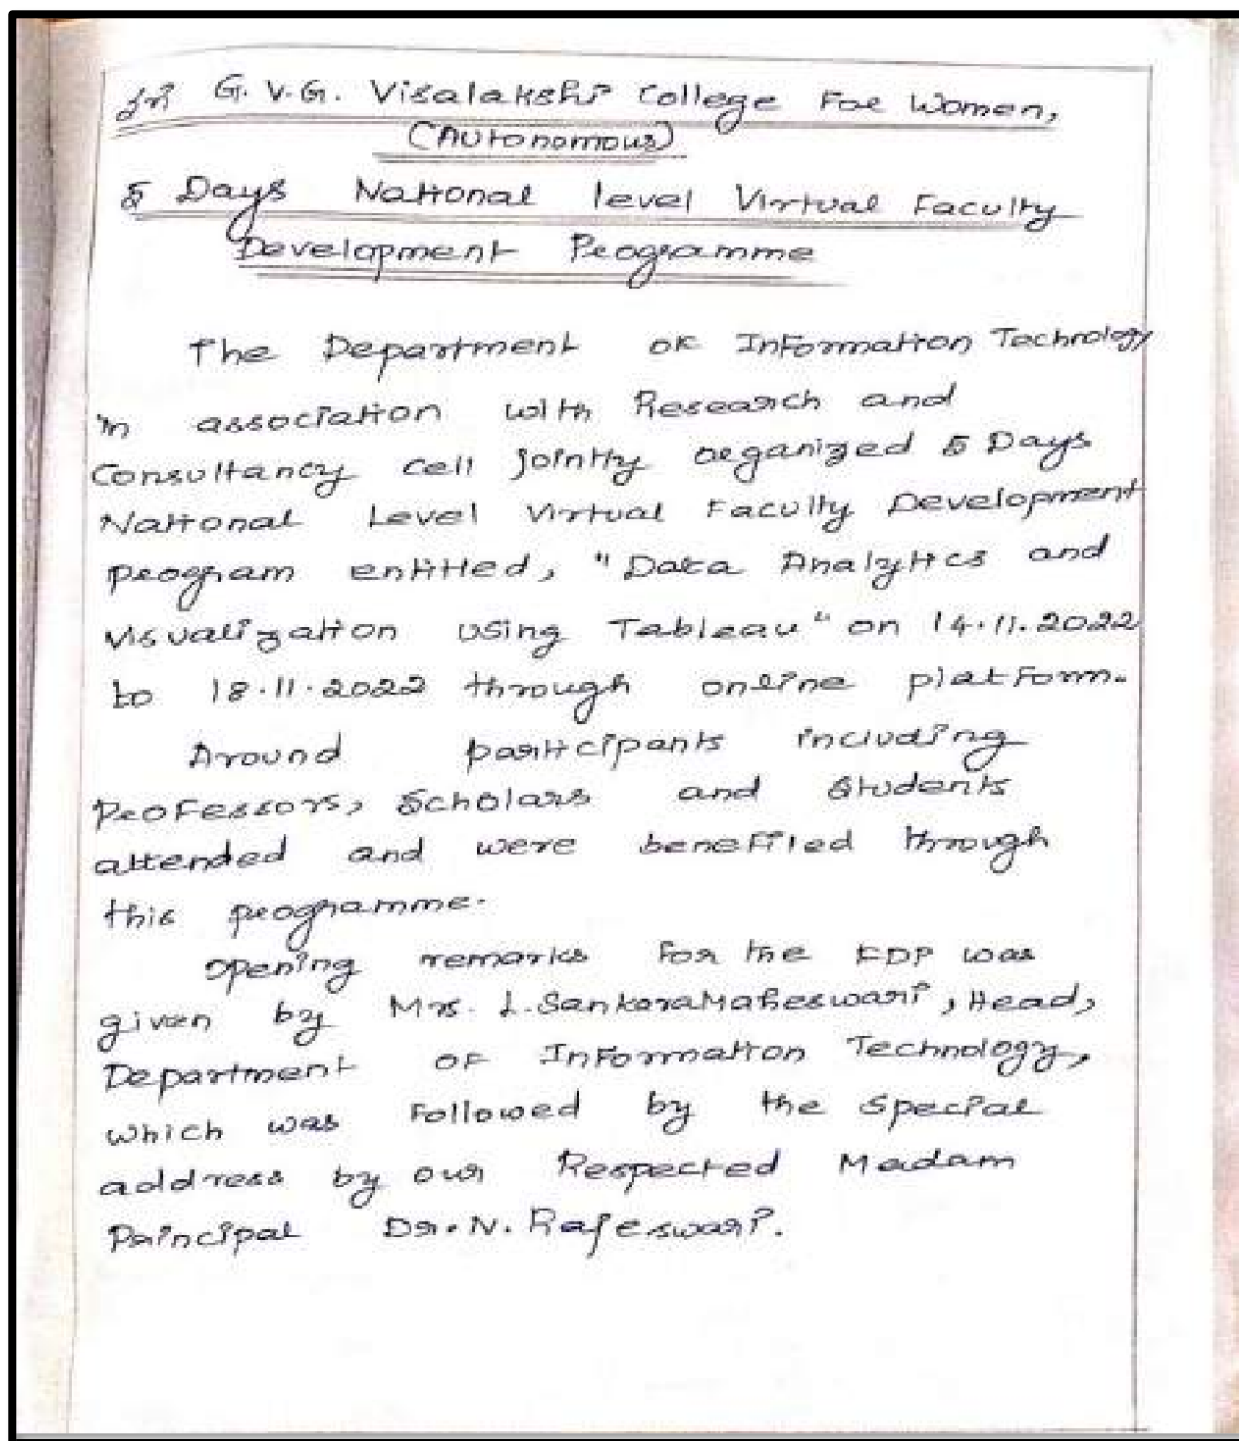 Sri G. V. G. Visalakshi College For Women,
(Autonomous)
5 Days National level Virtual Faculty
Development Programme
The Department of Information Technology
in association with Research and
Consultancy cell jointly organized 5 Days
National Level Virtual Faculty Development
program entitled, "Data Analytics and
Visualization using Tableau" on 14.11.2022
to 18.11.2022 through online platform.
Around participants including
Professors, Scholars and Students
attended and were benefited through
this programme.
Opening remarks for the FDP was
given by Mrs. L.SankaraMaheswari, Head,
Department of Information Technology,
which was followed by the special
address by our Respected Madam
Principal Dr. N. Rajeswari.